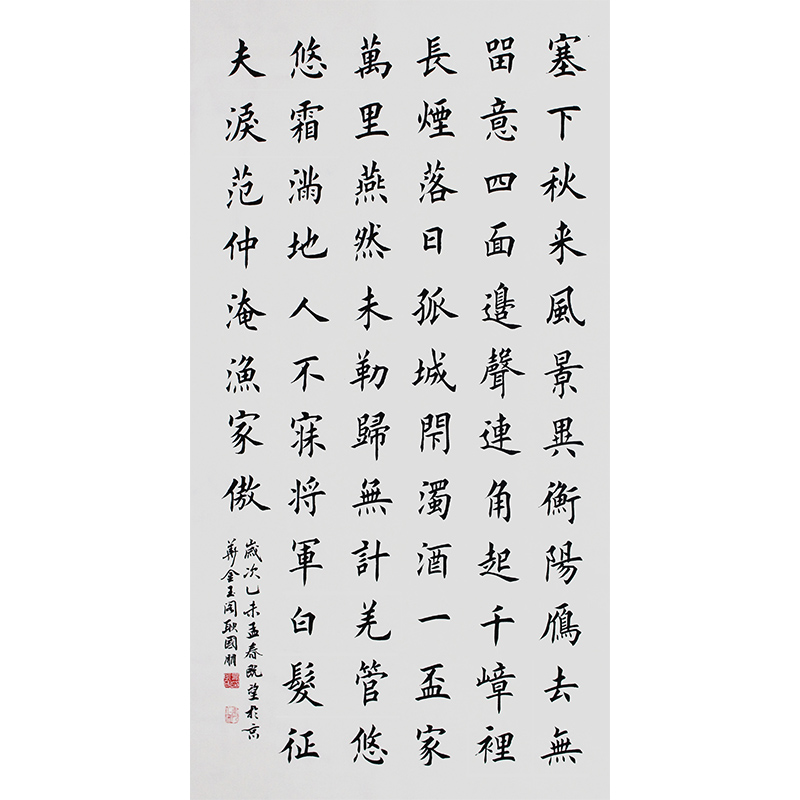 塞下秋来風景異衡陽鴈去無
留意四面邊聲連角起千嶂裡
長煙落日孤城閇濁酒一盃家
萬里燕然未勒歸無計羌管悠
悠霜滿地人不寐将軍白髮征
夫淚范仲淹漁家傲
歲次乙未孟春既望於京
華金玉閣耿國朋